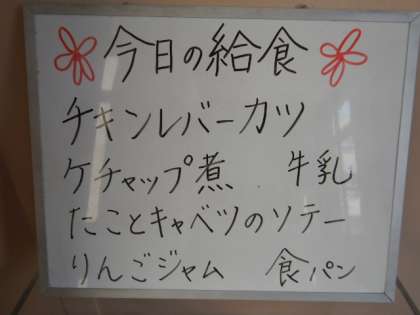 今日の給食
チキンレバーカツ
ケチャップ煮 牛乳
たことキャベツのソテー
りんごジャム 食パン